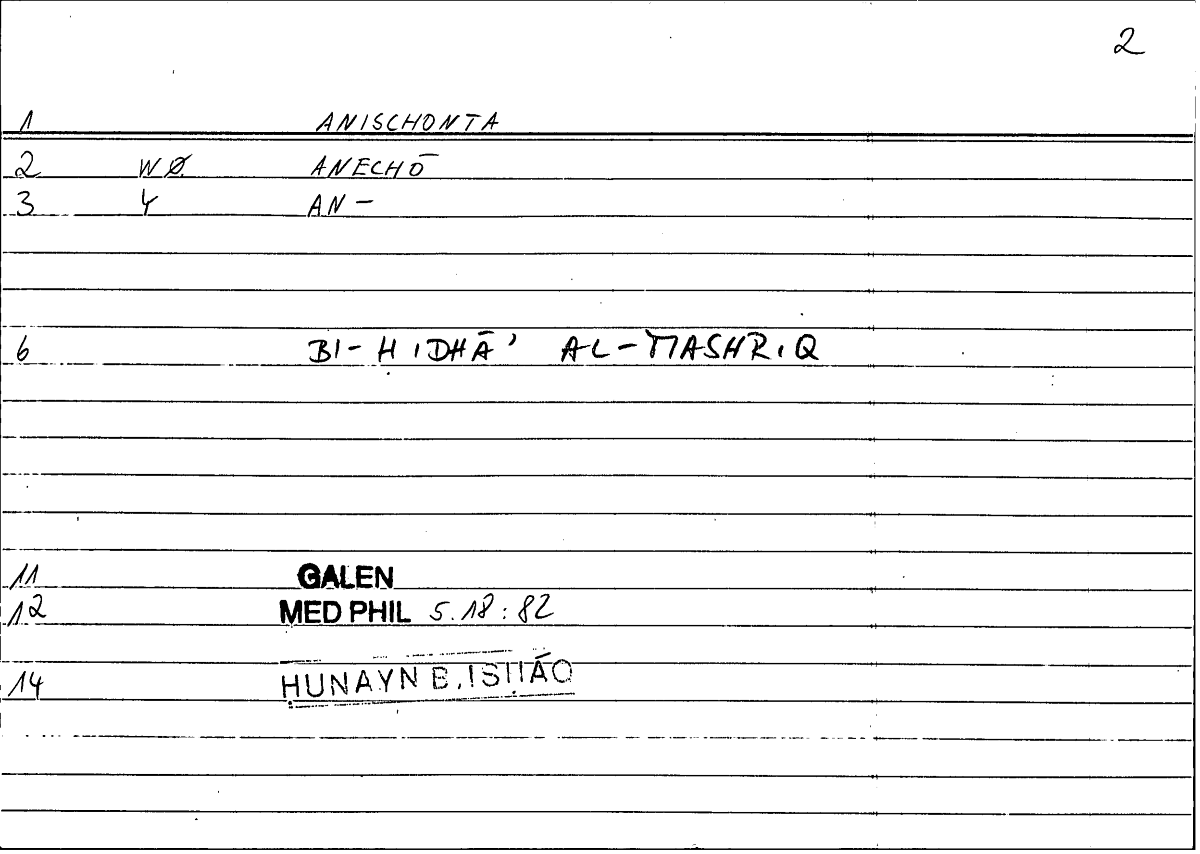 2
1 ANISCHONTA
2 WØ ANECHŌ
3 4 AN-
6 BI-ḤIDHĀ' AL-MASHRIQ
11 GALEN
12 MED PHIL 5.18:82
14 ḤUNAYN B. ISḤĀQ